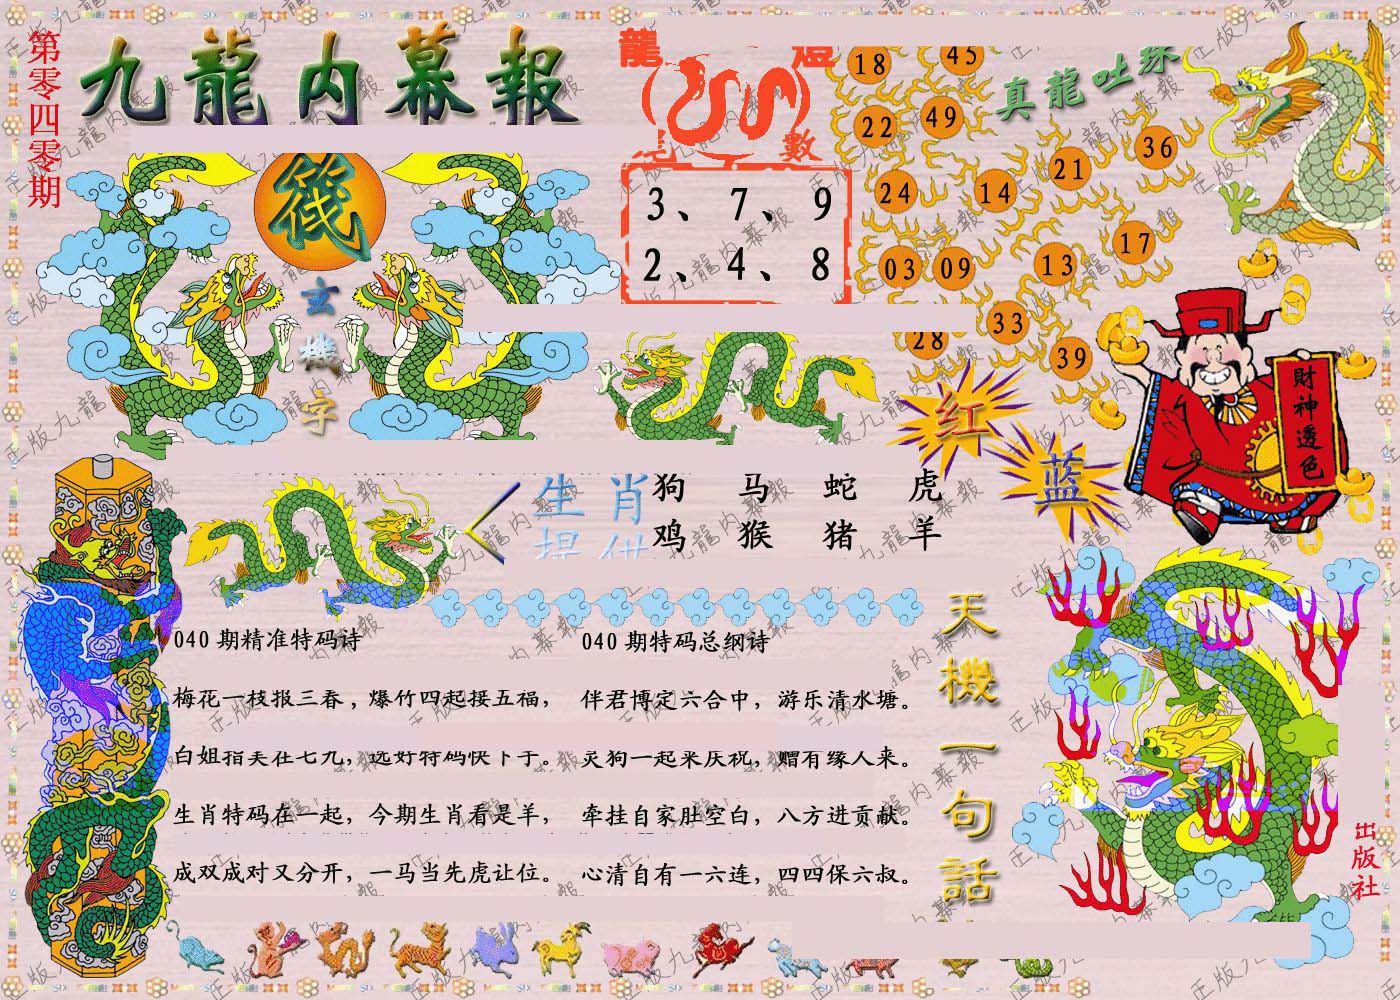 第零四零零期
九龍内幕報
筏
玄
機
字
龍
數
3、7、9
2、4、8
18 45
22 49
24 14 21 36
03 09 13 17
28 33 39
真龍吐珠
红
蓝
財神透色
生肖
提供
狗 马 蛇 虎
鸡 猴 猪 羊
040期精准特码诗
梅花一枝报三春，爆竹四起接五福，
白姐指美在七九，选好特码快下手。
生肖特码在一起，今期生肖看是羊，
成双成对又分开，一马当先虎让位。
040期特码总纲诗
伴君博定六合中，游乐清水塘。
灵狗一起来庆祝，赠有缘人来。
牵挂自家肚空白，八方进贡献。
心清自有一六连，四四保六叔。
天機一句話
出版社
正版九龍内幕報